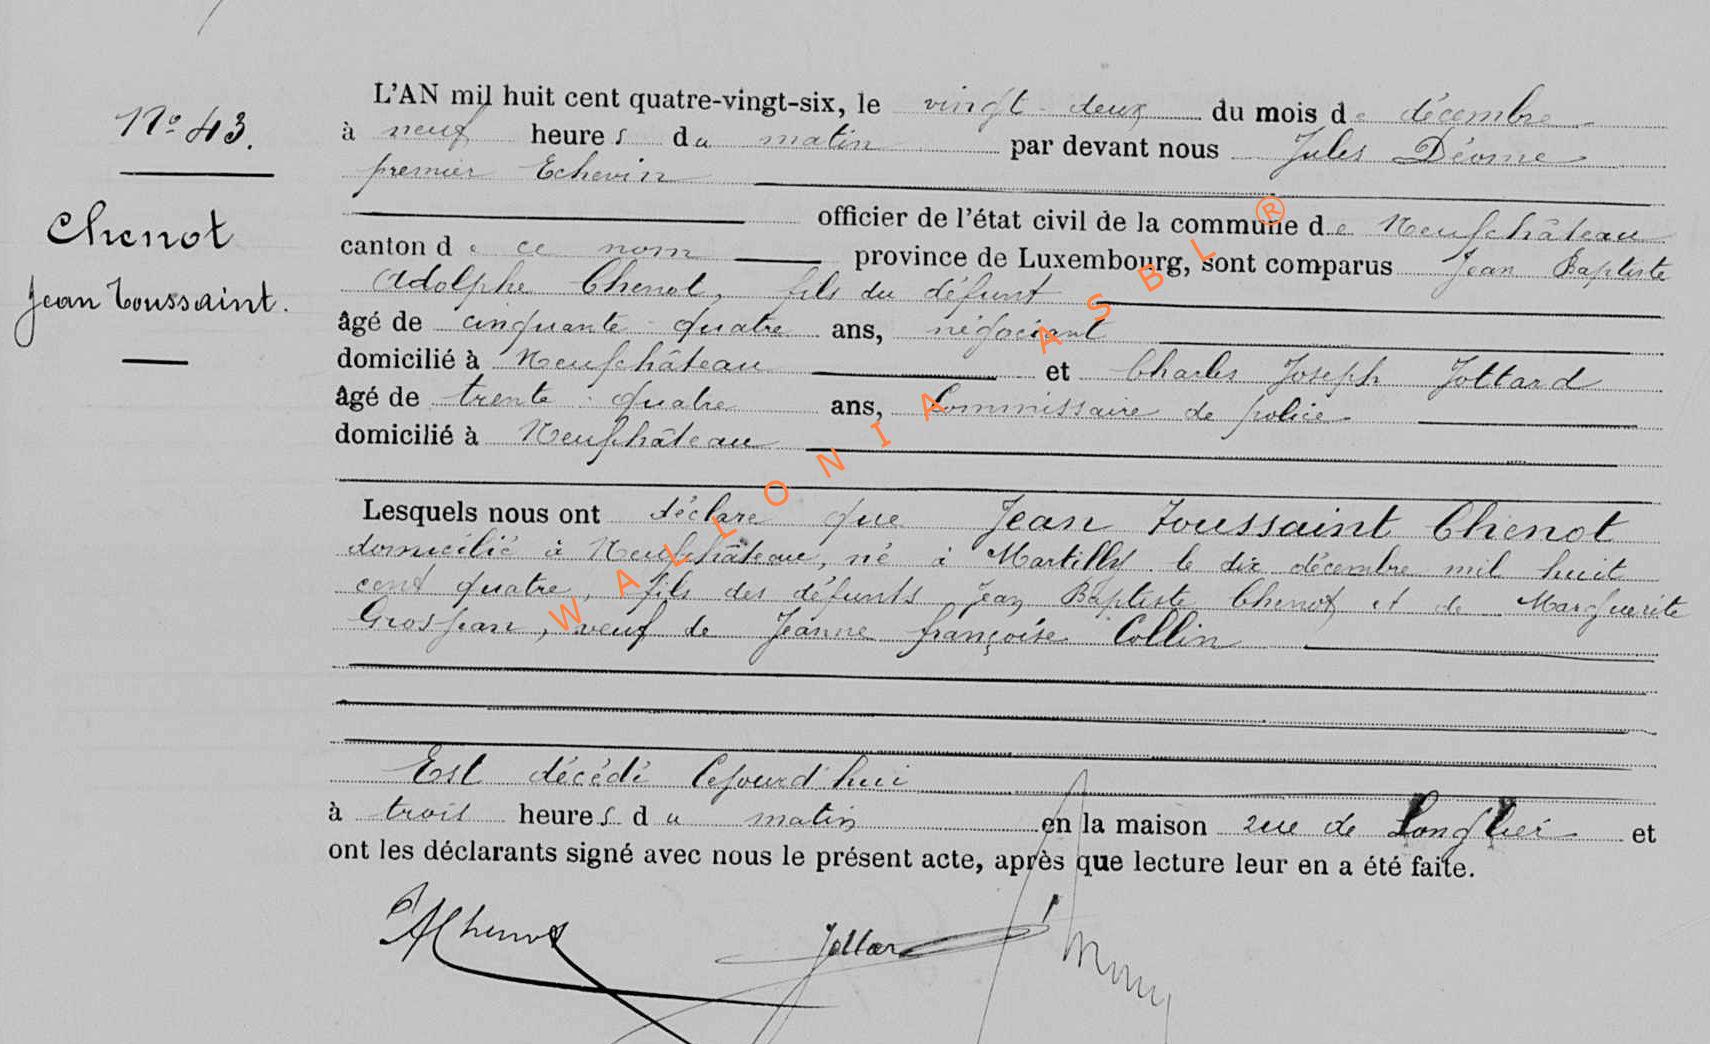 N° 43.
Chenot
Jean Toussaint.
L'AN mil huit cent quatre-vingt-six, le vingt-deux du mois de décembre
à neuf heures du matin par devant nous Jules Déome
premier Echevin
officier de l'état civil de la commune de Neufchâteau
canton de ce nom province de Luxembourg, sont comparus Jean Baptiste
Adolphe Chenot, fils du défunt
âgé de cinquante-quatre ans, négociant
domicilié à Neufchâteau et Charles Joseph Jottard
âgé de trente-quatre ans, Commissaire de police
domicilié à Neufchâteau
Lesquels nous ont déclaré que Jean Toussaint Chenot
domicilié à Neufchâteau, né à Martilly le dix décembre mil huit
cent quatre, fils des défunts Jean Baptiste Chenot et de Marguerite
Grosjean, veuf de Jeanne françoise Collin
Est décédé Cejourd'hui
à trois heures du matin en la maison rue de Longlier et
ont les déclarants signé avec nous le présent acte, après que lecture leur en a été faite.
AChenot
Jottard
WALLONIA ASBL ®